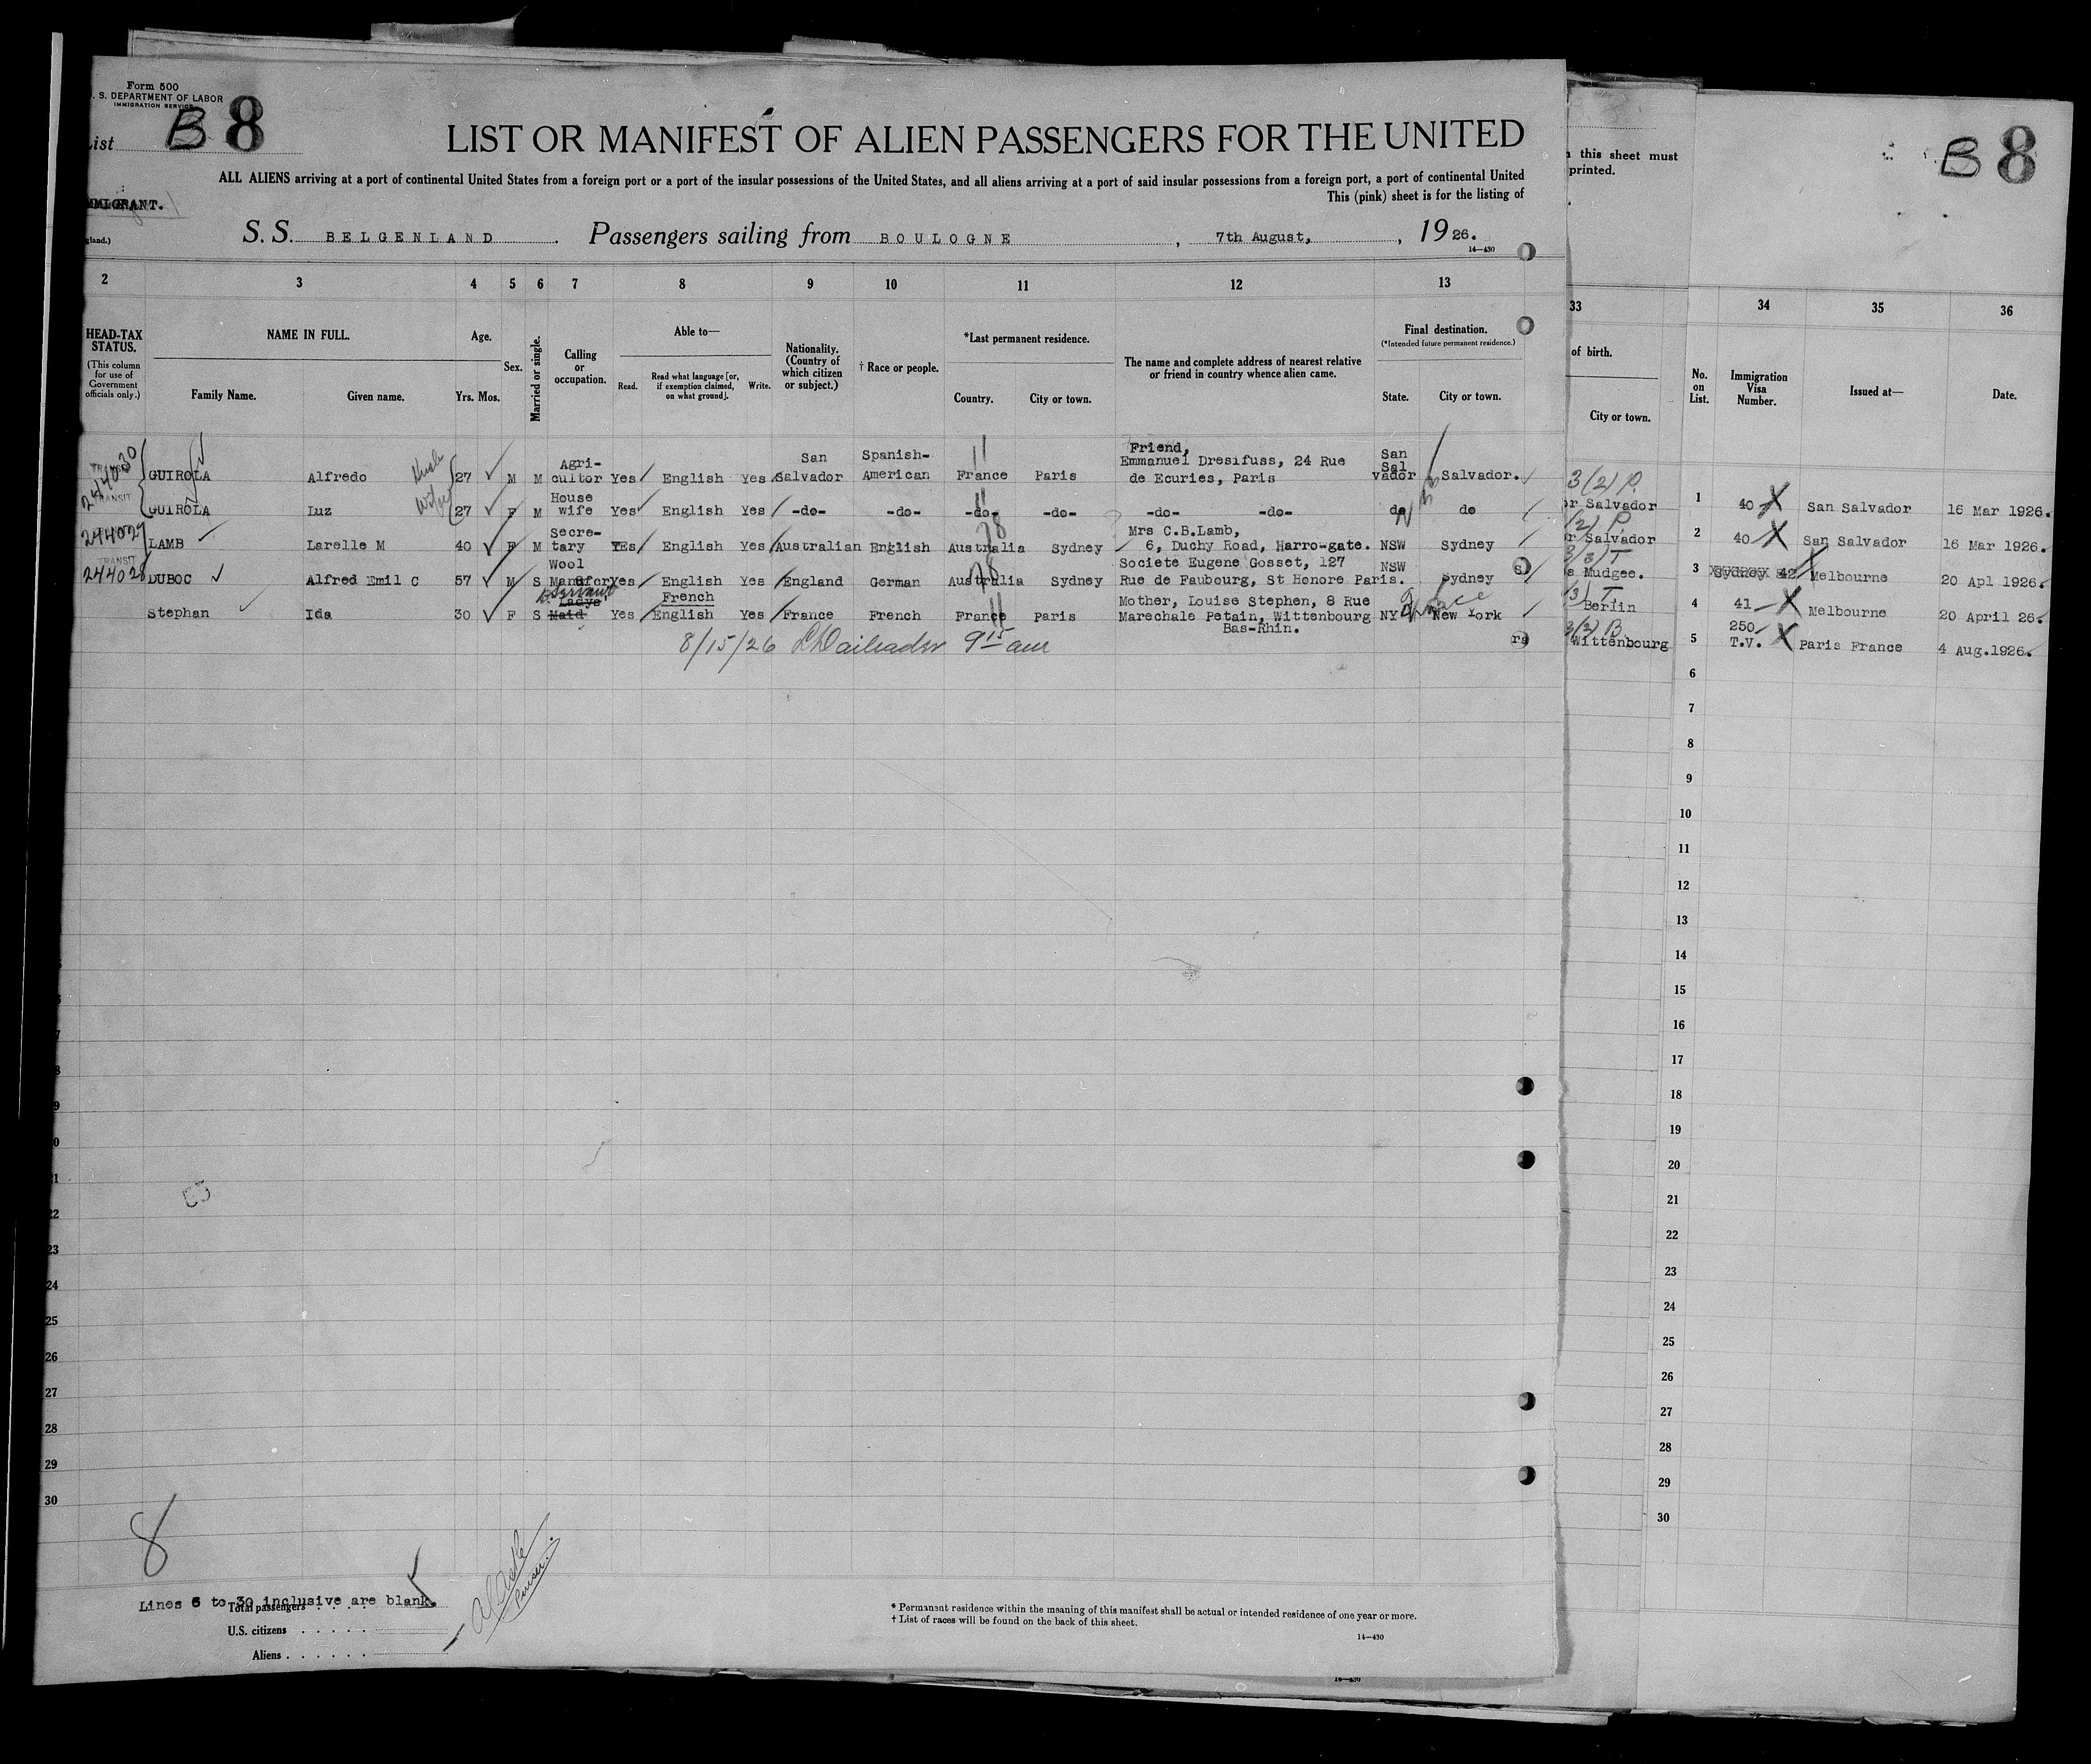 Form 500
S. DEPARTMENT OF LABOR
IMMIGRATION SERVICE
List B 8
LIST OR MANIFEST OF ALIEN PASSENGERS FOR THE UNITED
ALL ALIENS arriving at a port of continental United States from a foreign port or a port of the insular possessions of the United States, and all aliens arriving at a port of said insular possessions from a foreign port, a port of continental United
This (pink) sheet is for the listing of
S. S. BELGENLAND. Passengers sailing from BOULOGNE, 7th August, , 1926.
14—430
2 3 4 5 6 7 8 9 10 11 12 13
HEAD-TAX STATUS.
(This column for use of Government officials only.)
NAME IN FULL.
Family Name. Given name.
Age.
Yrs. Mos.
Sex.
Married or single.
Calling or occupation.
Able to—
Read. Read what language [or, if exemption claimed, on what ground]. Write.
Nationality. (Country of which citizen or subject.)
† Race or people.
*Last permanent residence.
Country. City or town.
The name and complete address of nearest relative or friend in country whence alien came.
Final destination.
(*Intended future permanent residence.)
State. City or town.
TRANSIT 244030 GUIROLA Alfredo Husb 27 M M Agri-cultor Yes English Yes San Salvador Spanish-American France Paris Friend, Emmanuel Dresifuss, 24 Rue de Ecuries, Paris San Salvador Salvador.
TRANSIT GUIROLA Luz Wife 27 F M House wife Yes English Yes -do- -do- -do- -do- -do- -do- do do
244029 LAMB Larelle M 40 F M Secre-tary YEs English Yes Australian English Australia Sydney Mrs C.B.Lamb, 6, Duchy Road, Harro-gate. NSW Sydney
TRANSIT 244028 DUBOC Alfred Emil C 57 M S Wool Manufcr Yes English Yes England German Australia Sydney Societe Eugene Gosset, 127 Rue de Faubourg, St Honore Paris. NSW Sydney
Stephan Ida 30 F S Servant Ladys' Maid Yes French English Yes France French France Paris Mother, Louise Stephen, 8 Rue Marechale Petain, Wittenbourg Bas-Rhin. NY New York
8/15/26 9 15 am
8
Lines 6 to 30 inclusive are blank.
Total passengers
U.S. citizens
Aliens
Purser.
* Permanent residence within the meaning of this manifest shall be actual or intended residence of one year or more.
† List of races will be found on the back of this sheet.
14—430
this sheet must
printed.
33
of birth.
City or town.
3(2) P.
or Salvador
(2) P.
or Salvador
3(3) T
s Mudgee.
(3) T
Berlin
3(2) B
Wittenbourg
B 8
34 35 36
No. on List. Immigration Visa Number. Issued at— Date.
1 40 San Salvador 16 Mar 1926.
2 40 San Salvador 16 Mar 1926.
3 42 Melbourne 20 Apl 1926.
4 41 Melbourne 20 April 26.
5 250 T.V. Paris France 4 Aug.1926.
6
7
8
9
10
11
12
13
14
15
16
17
18
19
20
21
22
23
24
25
26
27
28
29
30